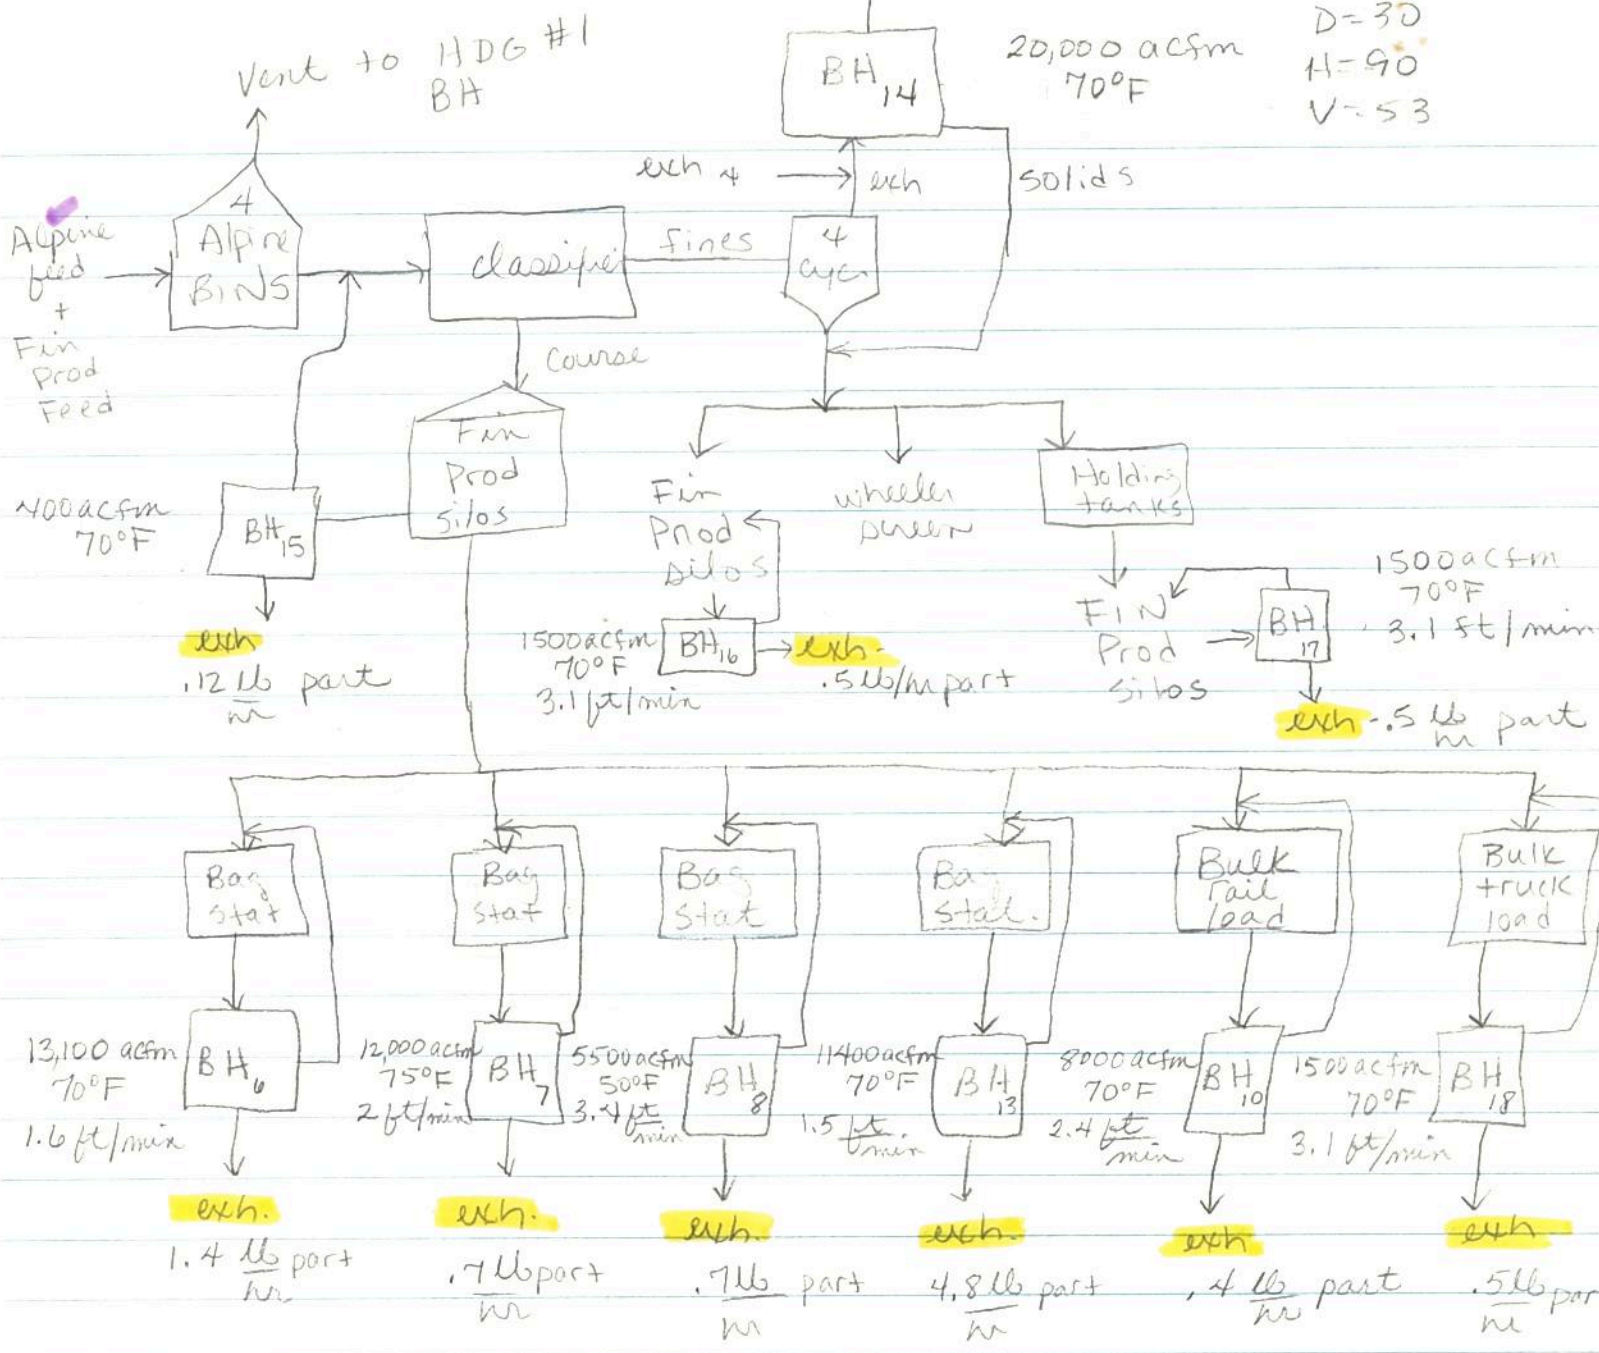 Vent to HDG #1
BH
BH 14
20,000 acfm
70°F
D=30
H=90
V=53
exh 4
exh
solids
Alpine
feed
+
Fin
Prod
Feed
4
Alpine
BINS
classifier
fines
4
cyc.
course
Fin
Prod
silos
400 acfm
70°F
BH 15
exh
.12 lb/hr part
Fin
Prod
silos
1500 acfm
70°F
3.1 ft/min
BH 16
exh-
.5 lb/hr part
wheeler
screen
Holding
tanks
FIN
Prod
silos
BH 17
1500 acfm
70°F
3.1 ft/min
exh - .5 lb/hr part
Bag
stat
Bag
stat
Bag
stat
Bag
stat.
Bulk
rail
load
Bulk
truck
load
13,100 acfm
70°F
1.6 ft/min
BH 6
12,000 acfm
75°F
2 ft/min
BH 7
5500 acfm
50°F
3.4 ft/min
BH 8
11400 acfm
70°F
1.5 ft/min
BH 13
8000 acfm
70°F
2.4 ft/min
BH 10
1500 acfm
70°F
3.1 ft/min
BH 18
exh.
1.4 lb/hr part
exh.
.7 lb/hr part
exh.
.7 lb/hr part
exh.
4.8 lb/hr part
exh
.4 lb/hr part
exh
.5 lb/hr par